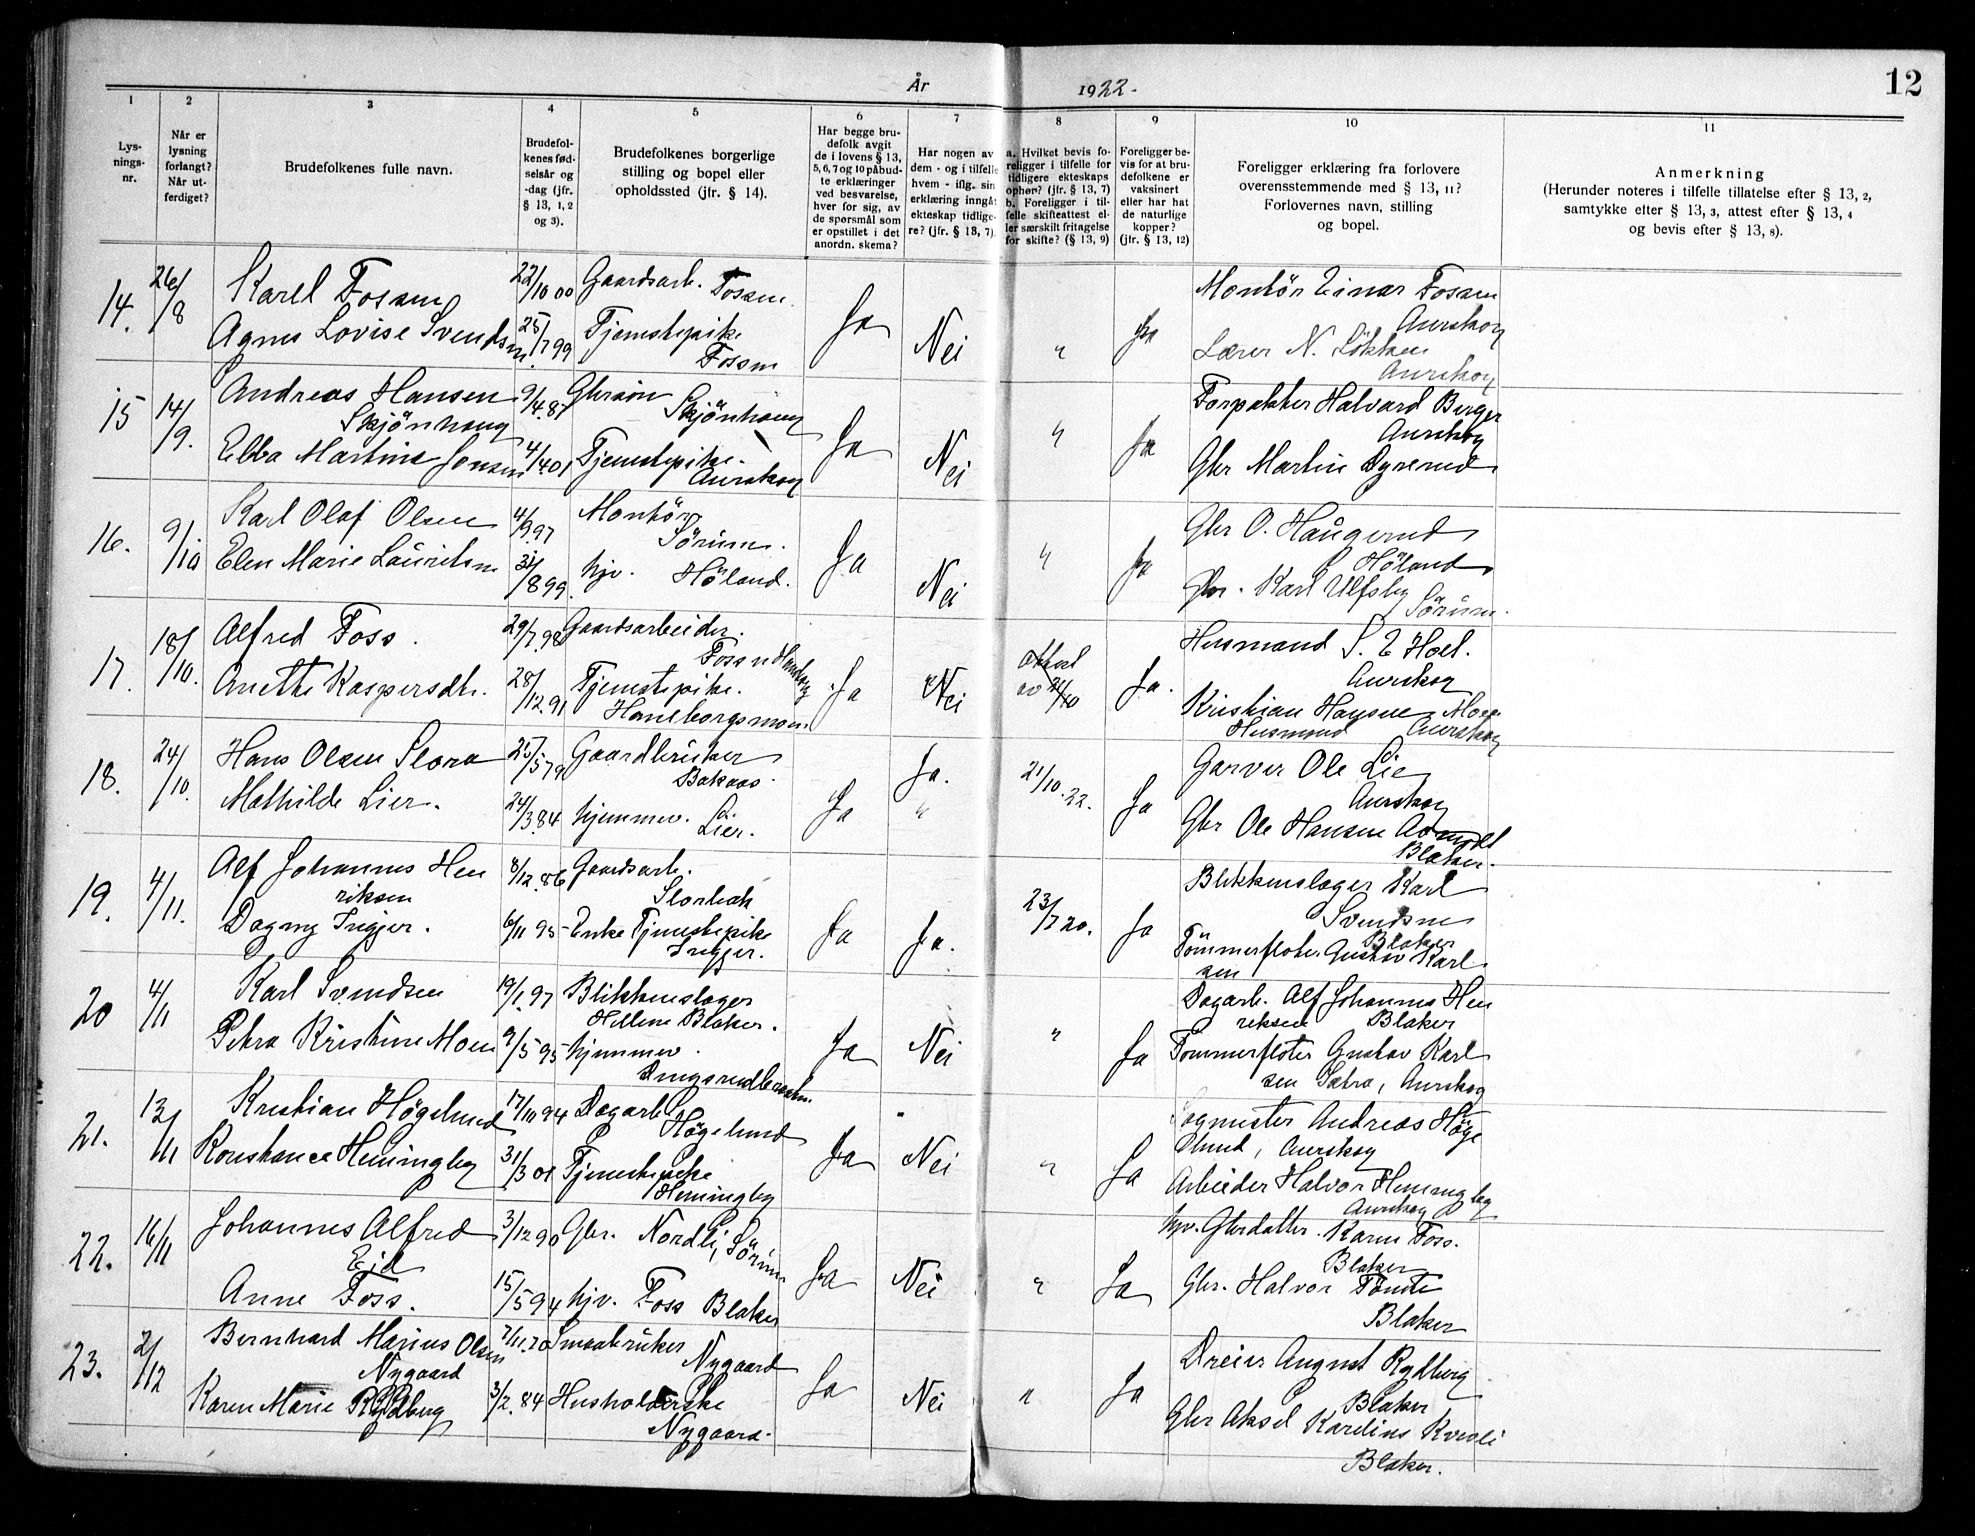 År 1922.
12
1
2
3
4
5
6
7
8
9
10
11
Lys-
nings-
nr.
Når er
lysning
forlangt?
Når ut-
ferdiget?
Brudefolkenes fulle navn.
Brudefol-
kenes fød-
selsår og
-dag (jfr.
§ 13, 1, 2
og 3).
Brudefolkenes borgerlige
stilling og bopel eller
opholdssted (jfr. § 14).
Har begge bru-
defolk avgit
de i lovens § 13,
5, 6, 7 og 10 påbud-
te erklæringer
ved besvarelse,
hver for sig, av
de spørsmål som
er opstillet i det
anordn. skema?
Har nogen av
dem - og i tilfelle
hvem - iflg. sin
erklæring inngåt
ekteskap tidlige-
re? (jfr. § 13, 7).
a. Hvilket bevis fo-
religger i tilfelle for
tidligere ekteskaps
ophør? (jfr. § 13, 7)
b. Foreligger i til-
felle skifteattest el-
ler særskilt fritagelse
for skifte? (§ 13, 9)
Foreligger be-
vis for at bru-
defolkene er
vaksinert
eller har hat
de naturlige
kopper?
(jfr. § 13, 12)
Foreligger erklæring fra forlovere
overensstemmende med § 13, 11?
Forlovernes navn, stilling
og bopel.
Anmerkning
(Herunder noteres i tilfelle tillatelse efter § 13, 2,
samtykke efter § 13, 3, attest efter § 13, 4
og bevis efter § 13, 8).
14.
26/8
Karel Fossen
Agnes Lovise Svendsen
22/10 00
25/7 99
Gaardsarb. Fossen.
Tjenestepike
Fossen
Ja
Nei
"
Ja
Montör Einar Fossen
Aurskog
Lærer N. Lökken
Aurskog
15
14/9.
Andreas Hansen
Skjönhaug
Ebba Martine Jonsen
9/4.87
4/4.01
Gbrsön
Skjönhaug
Tjenestepike.
Aurskog
Ja
Nei
"
Ja
Forpakter Halvard Berger
Aurskog
Gbr Martin Dyrerud
16.
9/10
Karl Olaf Olsen
Elen Marie Lauritsen
4/9.97
31/8 99.
Montör
Sörum.
hjv. Höland.
Ja
Nei
"
Ja
Gbr O. Haugerud
Höland
Gbr. Karl Ulfsby
Sörum.
17.
18/10.
Alfred Foss.
Anette Kaspersdtr.
29/7.98
28/12.91
Gaardsarbeider.
Tjenestepike.
Haneborgsmoen.
Ja
Nei
Ja.
Husmand S. E Hoel.
Aurskog
Kristian Hansen Moen
Husmand Aurskog
18.
24/10.
Hans Olsen Slora
Mathilde Lier.
25/5 79
24/3.84
Gaardbruker
Bakaas.
hjemmev.
Lier.
Ja
Ja.
"
21/10.22.
Ja
Garver Ole Lie
Aurskog
Gbr Ole Hansen
Blaker.
19.
4/11.
Alf Johannes Hen
riksen
Dagny Ingjer.
8/12.86
6/11 95
Gaardsarb.
Slorbak
Enke Tjenestepike
Ingjer.
Ja
Ja.
23/7 20.
Ja
Blikkenslager Karl
Svendsen
Blaker
Tömmerfloter Gustav Karl
sen
20
4/11
Karl Svendsen
Petra Kristine Moen
19/1.97
9/5 95
Blikkenslager
Hellene Blaker.
hjemmev.
Ja
Nei
"
Ja
Dagarb. Alf Johannes Hen
riksen Blaker
Tömmerfloter Gustav Karl
sen Sætra, Aurskog
21.
13/11
Kristian Högelund
Konstance Hemingby
17/10 94
31/3 01
Dagarb.
Högelund
Tjenestepike
Hemingby
Ja
Nei
"
Ja
Sagmester Andreas Höge
lund, Aurskog
Arbeider Halvor Hemingby
Aurskog
22.
16/11
Johannes Alfred
Eid
Anne Foss.
3/12 90
15/5 94
Gbr. Nordli, Sörum
hjv. Foss Blaker
Ja
Nei
"
Ja
hjv. Gbrdatter. Karen Foss.
Blaker
Gbr. Halvor Tömte
Blaker
23.
2/12
Bernhard Marius Olsen
Nygaard
Karen Marie Rydberg
7/11.70
3/2.84
Smaabruker
Nygaard
Husholderske
Nygaard.
Ja
Nei
"
Ja
Dreier August Rydberg
Blaker
Gbr Aksel Karelius Kveoli
Blaker.